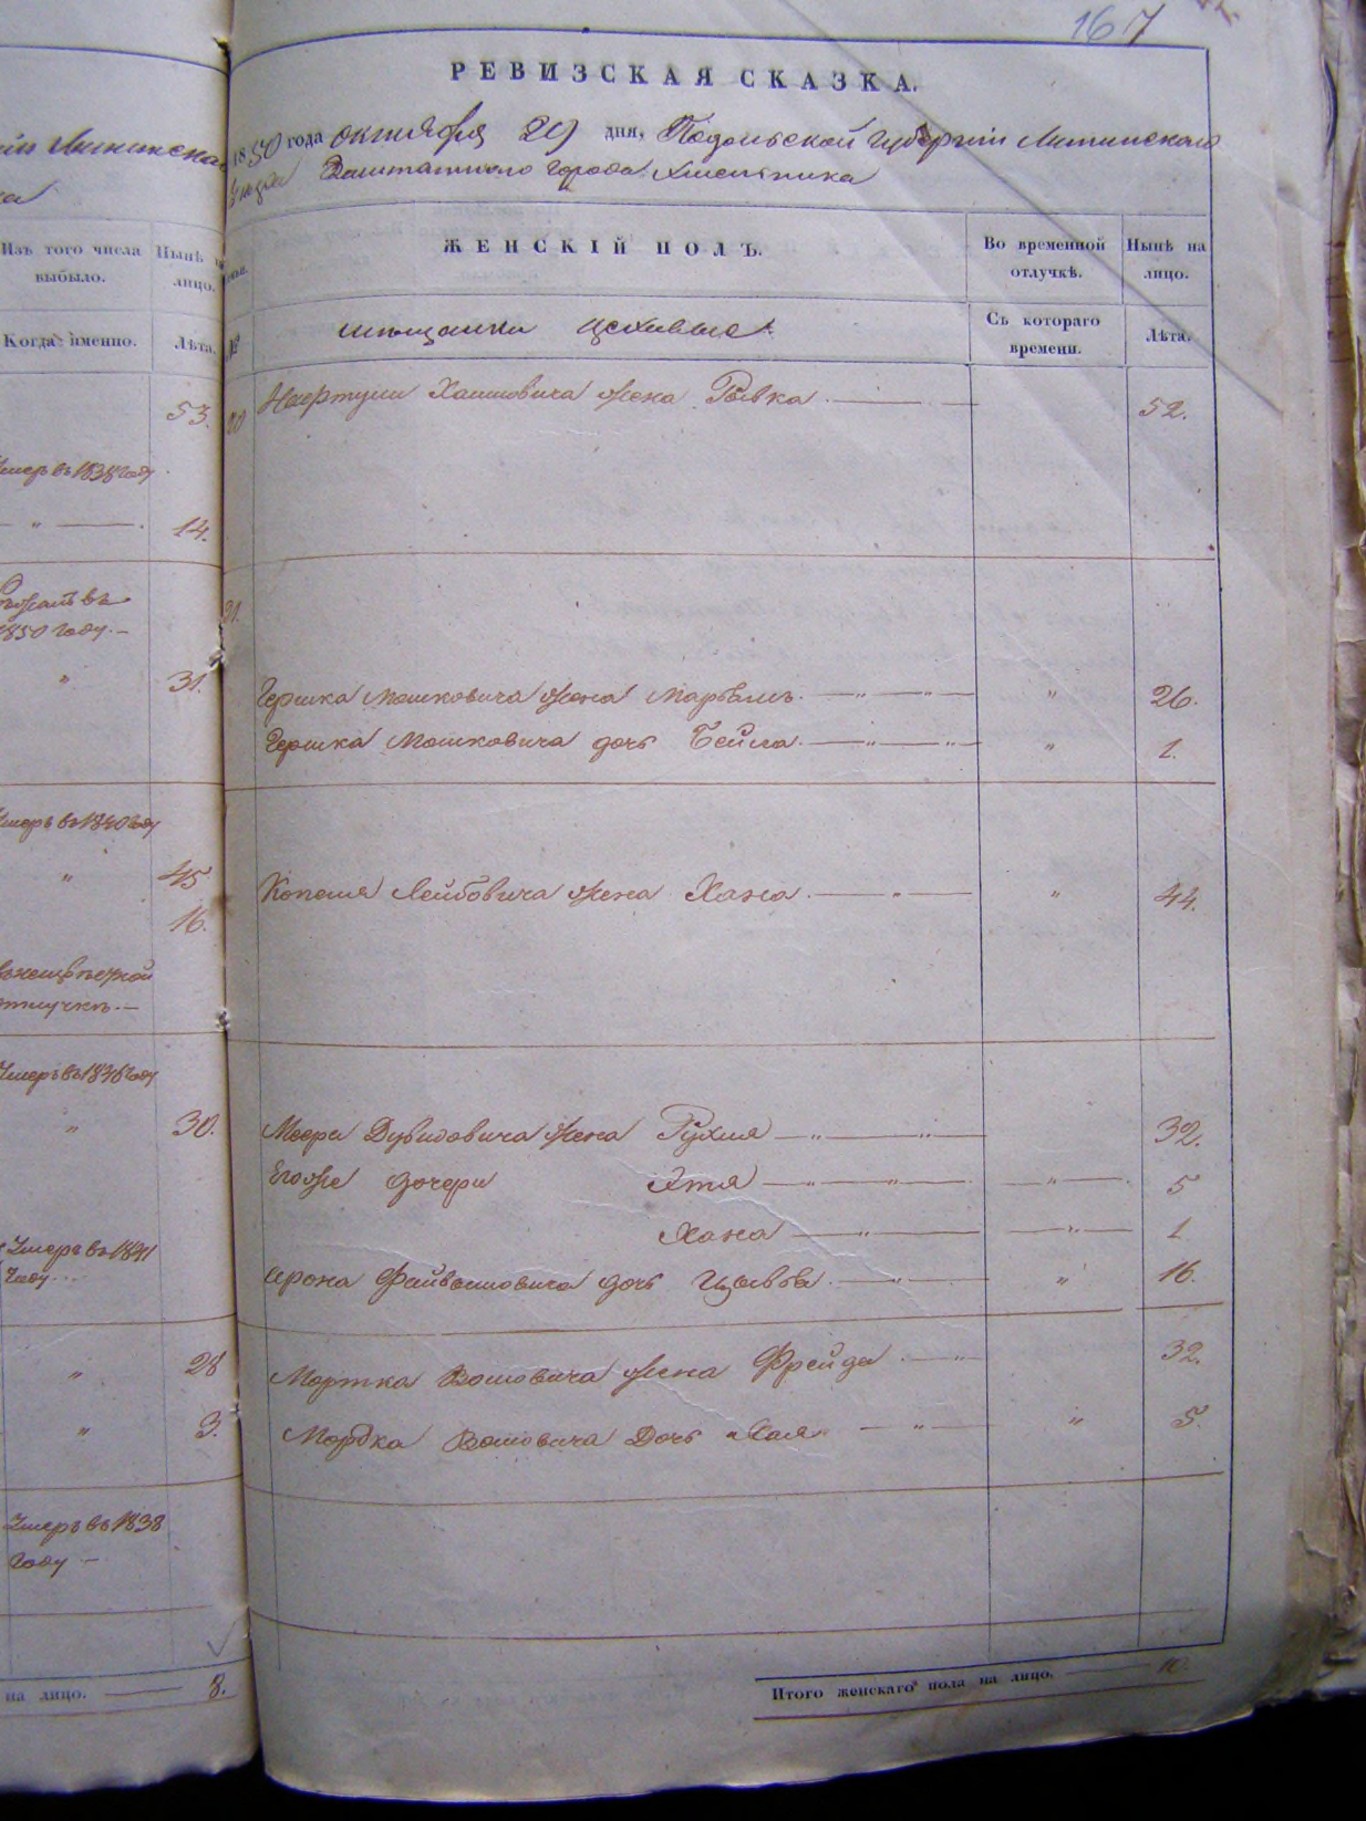 167
РЕВИЗСКАЯ СКАЗКА.
1850 года октября 29 дня, Подольской Губернiи Литинского
Уезда Заштатного города Хмельника
Изъ того числа выбыло.
Нынѣ на лицо.
Когда именно.
Лѣта.
53.
Умеръ въ 1838 году
— " — 14.
1850 году. —
" 31.
Умеръ въ 1840 году
" 45
16.
отлучкѣ. —
Умеръ въ 1836 году
" 30.
Умеръ въ 1841
году
" 28
" 3.
Умеръ въ 1838
году —
на лицо. — 8.
№
ЖЕНСКIЙ ПОЛЪ.
Во временной отлучкѣ.
Нынѣ на лицо.
мѣщанки цеховые
Съ котораго времени.
Лѣта.
20 Хаимовича жена Рывка. — 52.
21.
Гершка Мошковича жена Марьямъ. — " — " — " 26.
Гершка Мошковича дочь Бейла. — " — " — " 1.
Копеля Лейбовича жена Хана. — " — " 44.
Меера Дувидовича жена Рухля — " — " — 32.
Егоже дочери Этя — " — " — — " — 5
Хана — " — — " — 1
Арона Файвышовича дочь Цывья. — " — " 16.
Мортка Волховича жена Фрейда. — " — 32.
Мордка дочь Хая — " — " 5.
Итого женскаго пола на лицо. — 10.